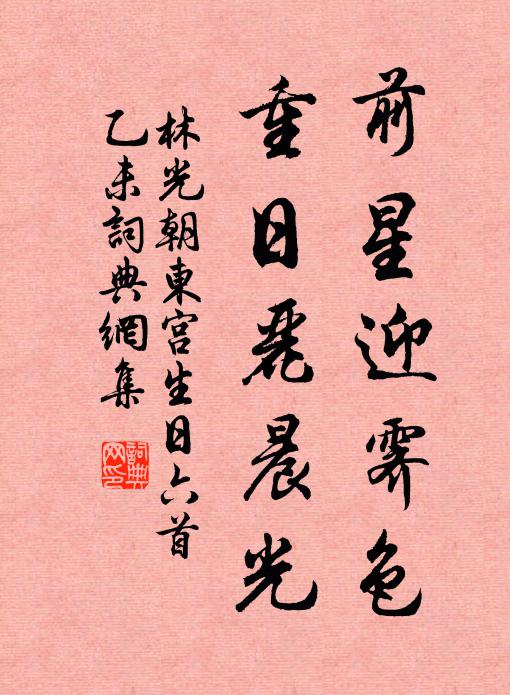 前星迎霽色
重日麗晨光
林光朝東宮生日六首
乙未詞典網集
詞典網印